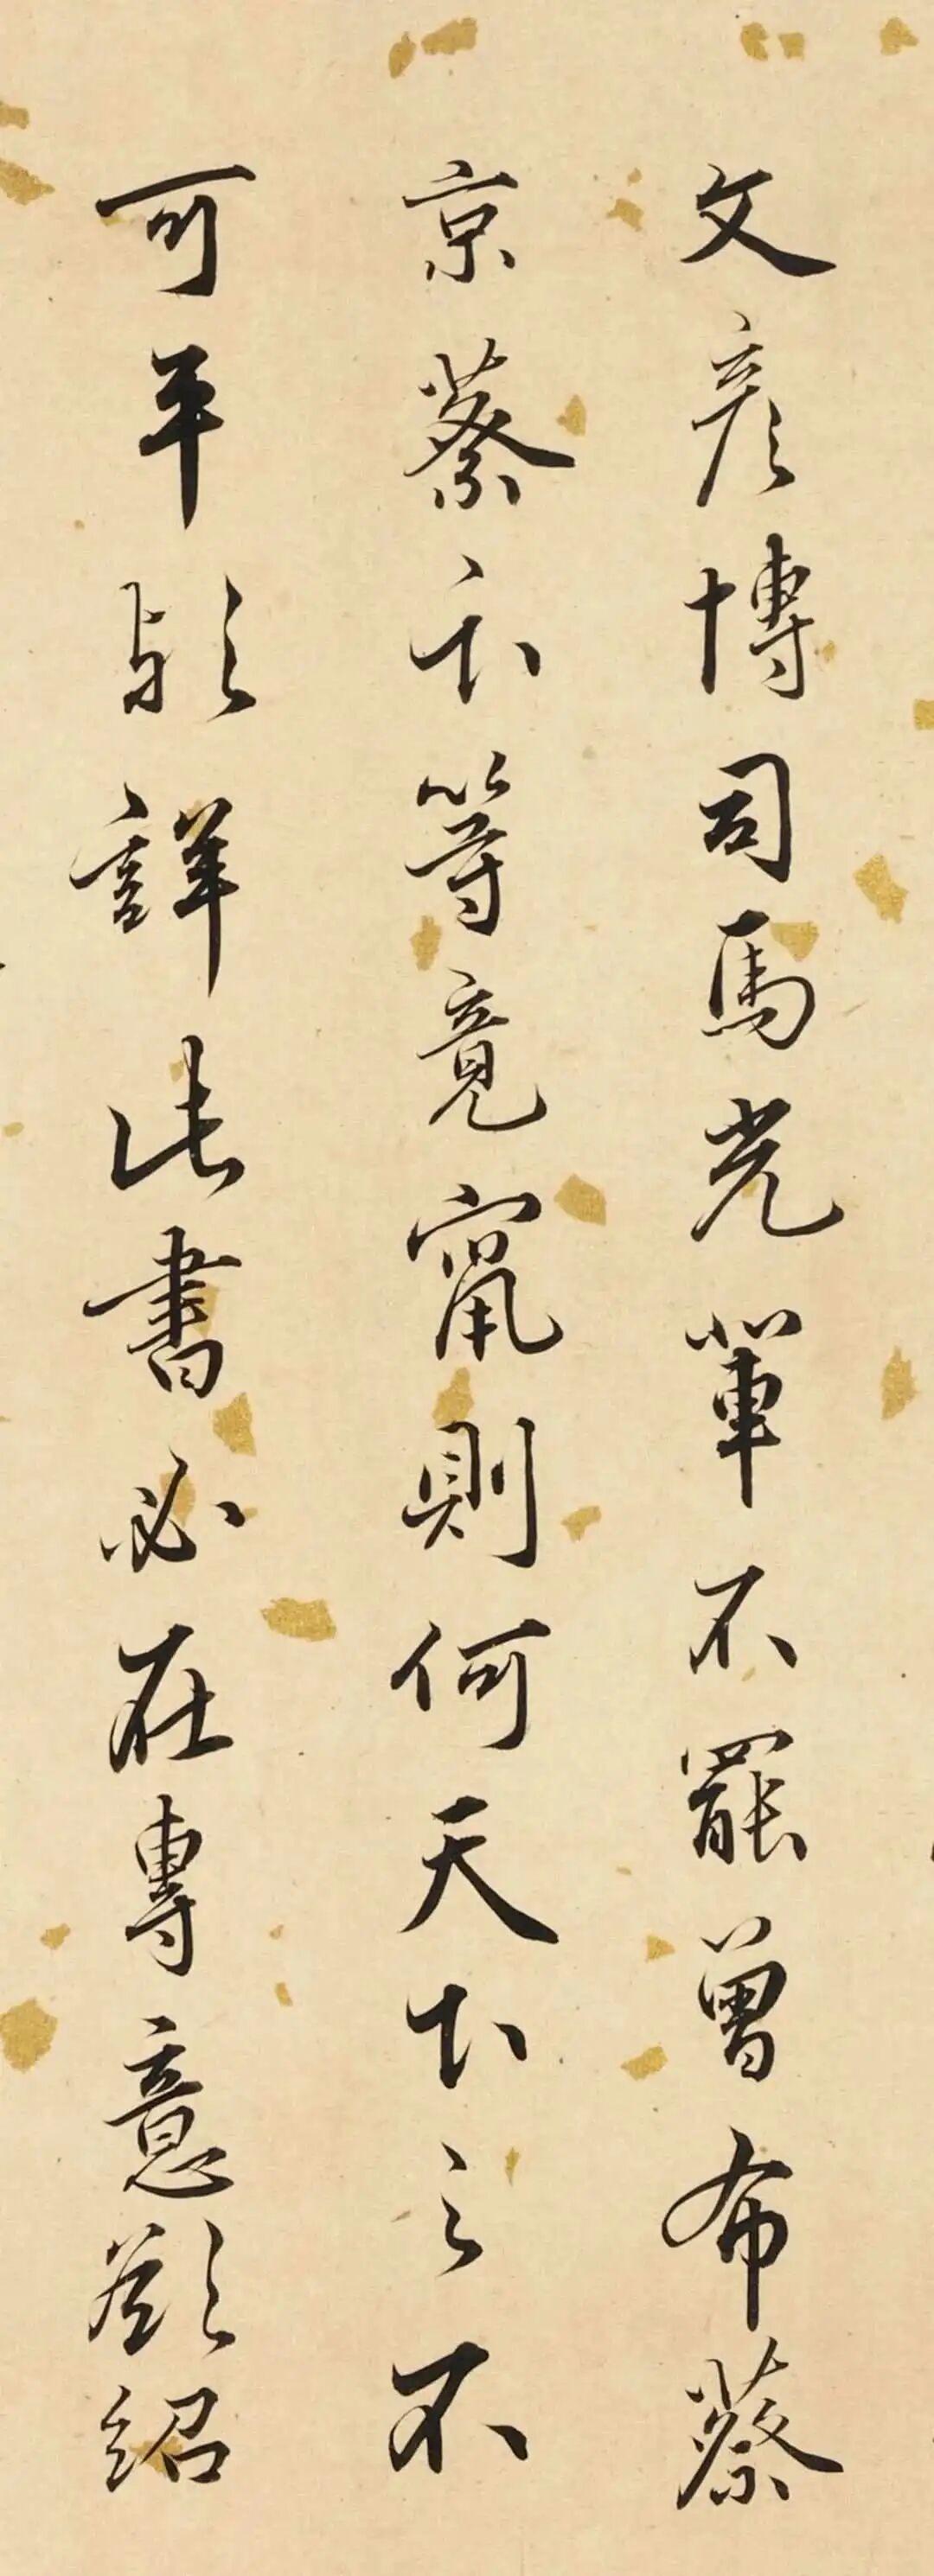 文彥博司馬光輩不罷曾布蔡
京蔡卞等竟竄則何天下之不
可平歟詳此書必在專意欲紹